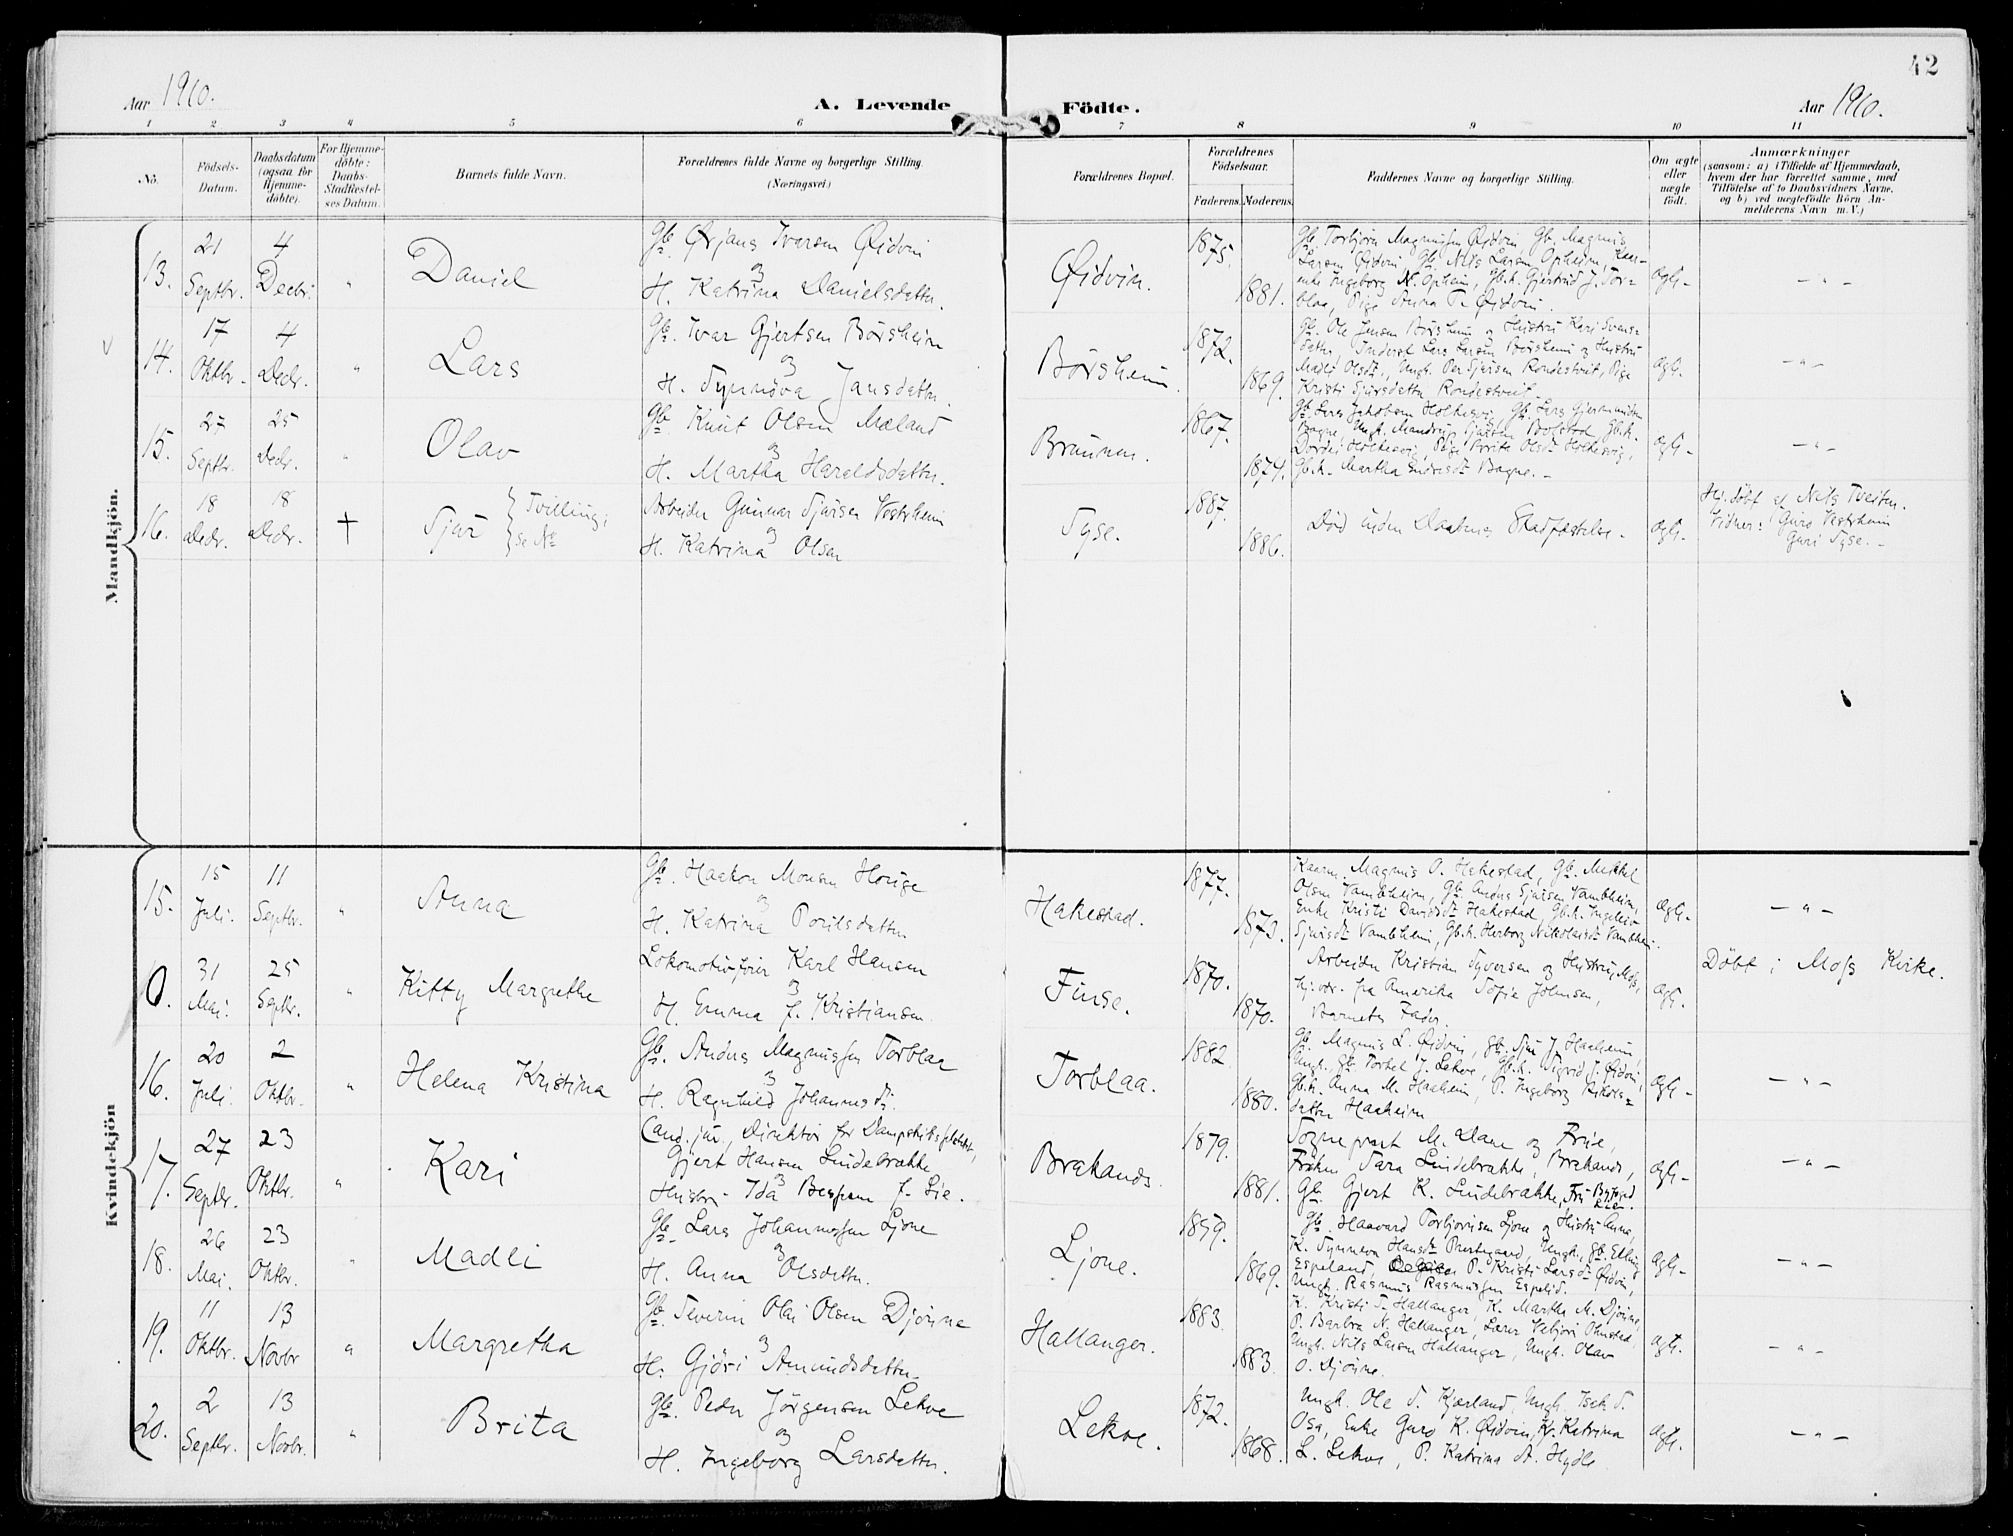 42
Aar 1910.
A. Levende Födte.
Aar 1910.
1 2 3 4 5 6 7 8 9 10 11
No.
Födsels-Datum.
Daabsdatum (ogsaa for Hjemme-döbte).
For Hjemme-döbte: Daabs-Stadfæstel-ses Datum.
Barnets fulde Navn.
Forældrenes fulde Navne og borgerlige Stilling.
(Næringsvei.)
Forældrenes Bopæl.
Forældrenes Födselsaar.
Faderens. Moderens.
Faddernes Navne og borgerlige Stilling.
Om ægte eller uægte födt.
Anmærkninger
(saasom: a) i Tilfælde af Hjemmedaab,
hvem der har forrettet samme, med
Tilföielse af to Daabsvidners Navne.
og b) ved uægtefödte Börn An-
melderens Navn m. V.)
Mandkjön.
13. 21 Septbr. 4 Decbr. " Daniel
Gb. Ørjans Ivarsen Øidvin
og
H. Katrina Danielsdatter.
Øidvin. 1875. 1881.
Gb. Torbjörn Magnussen Øidvin, Gb. Magnus
Larsen Øidvin, Gb. Nils Larsen Opheim, Kaar-
enke Ingeborg N. Opheim, Gb.k. Gjertrud J. Tor-
blaa, Pige Anna T. Øidvin.
Ægte - " -
14. 17 Oktbr. 4 Decbr. " Lars
Gb. Ivar Gjertsen Børsheim
og
H. Synnøva Jansdatter.
Børsheim. 1872. 1869.
Gb. Ole Jensen Børsheim og Hustru Kari Svens-
datter, Inderst Lars Larsen Børsheim og Hustru
Madli Olsdr., Ungk. Per Sjursen Rondestveit, Pige
Kristi Sjursdatter Rondestveit.
Ægte. - " -
15. 27 Septbr. 25 Decbr. " Olav
Gb. Knut Olsen Mæland
og
H. Martha Haraldsdatter.
Braunen. 1867. 1874.
Gb. Lars Jakobsen Holtesvig, Gb. Lars Gjermundsen
Bagne, Ungk. Mandrup Sjursen Bolstad, Gb.k.
Dordei Holtesvig, Pige Brita Olsdr. Holtesvig,
Gb.k. Martha Endresdr. Bagne. -
Ægte - " -
16. 18 Decbr. 18 Decbr. † Sjur { Tvilling; se No
Arbeider Gunnar Sjursen Vestrheim
og
H. Katrina Olsen
Syse. 1887. 1886.
Død uden Daabens Stadfæstelse.
Ægte -
Hj. døbt af Nils Tveiten.
Vidner: Guro Vestrheim
Guri Syse. -
Kvindekjön
15. 15 Juli. 11 Septbr. " Anna
Gb. Haakon Monsen Horige
og
H. Katrina Povelsdatter
Hakestad. 1877. 1873.
Kaarm. Magnus O. Hakestad, Gb. Mikkel
Olsen Vambheim, Gb. Anders Sjursen Vambheim,
Enke Kristi Davidsdr. Hakestad, Gb.k. Ingeleiv
Sjursdr. Vambheim, Gb.k. Herborg Nikolaisdr. Vambheim.
Ægte - " -
0. 31 Mai. 25 Septbr. " Kitty Margrethe
Lokomotivfører Karl Hansen
og
H. Emma f. Kristiansen.
Finse. 1870. 1870.
Arbeider Kristian Syversen og Hustru, Moss,
hj.vær. fra Amerika Sofie Johnsen,
Barnets Fader.
Ægte.
Døbt i Moss Kirke.
16. 20 Juli. 2 Oktbr. " Helena Kristina
Gb. Anders Magnussen Torblaa
og
H. Ragnhild Johannesdr.
Torblaa. 1882 1880.
Gb. Magnus L. Øidvin, Gb. Sjur J. Haaheim,
Ungk. Gb. Torkel J. Lekve, Gb.k. Sigrid J. Øidvin,
Gb.k. Anna M. Haaheim, P. Ingeborg Nikols-
datter Haaheim
Ægte - " -
17. 27 Septbr. 23 Oktbr. " Kari
Cand. jur., Direktør for Dampskibsselskabet,
Gjert Hansen Lindebrække
og
Hustru Ida Bergitte f. Lie.
Brakanes. 1879. 1881.
Sogneprest M. Daae og Frue,
Frøken Sara Lindebrække, Brakanes,
Gb. Gjert K. Lindebrække, Fru Byfoged
Lie.
Ægte - " -
18. 26 Mai. 23 Oktbr. " Madli
Gb. Lars Johannessen Ljone
og
H. Anna Olsdatter.
Ljone. 1859. 1869.
Gb. Haavard Torbjørnsen Ljone og Hustru Anna,
K. Synneva Hansdr. Prestegaard, Ungk. Gb. Elling
Espeland, P. Kristi Larsdr. Øidvin,
Ungk. Rasmus Rasmussen Espelid.
Ægte - " -
19. 11 Oktbr. 13 Novbr " Margretha
Gb. Severin Olai Olsen Djönne
og
H. Gjöri Amundsdatter
Hallanger. 1883. 1883.
K. Kristi T. Hallanger, K. Martha M. Djönne,
P. Barbra N. Hallanger, Lærer Vebjörn Ohnstad,
Ungk. Nils Larsen Hallanger, Ungk. Olav
O. Djönne.
Ægte. - " -
20. 2 Septbr. 13 Novbr. " Brita
Gb. Peder Jörgensen Lekve
og
H. Ingeborg Larsdatter.
Lekve. 1872. 1868.
Ungk. Ole S. Kjærland, Ungk. Isak S.
Osa, Enke Guro K. Øidvin, K. Katrina
L. Lekve, P. Katrina A. Hydle
Ægte. - " -